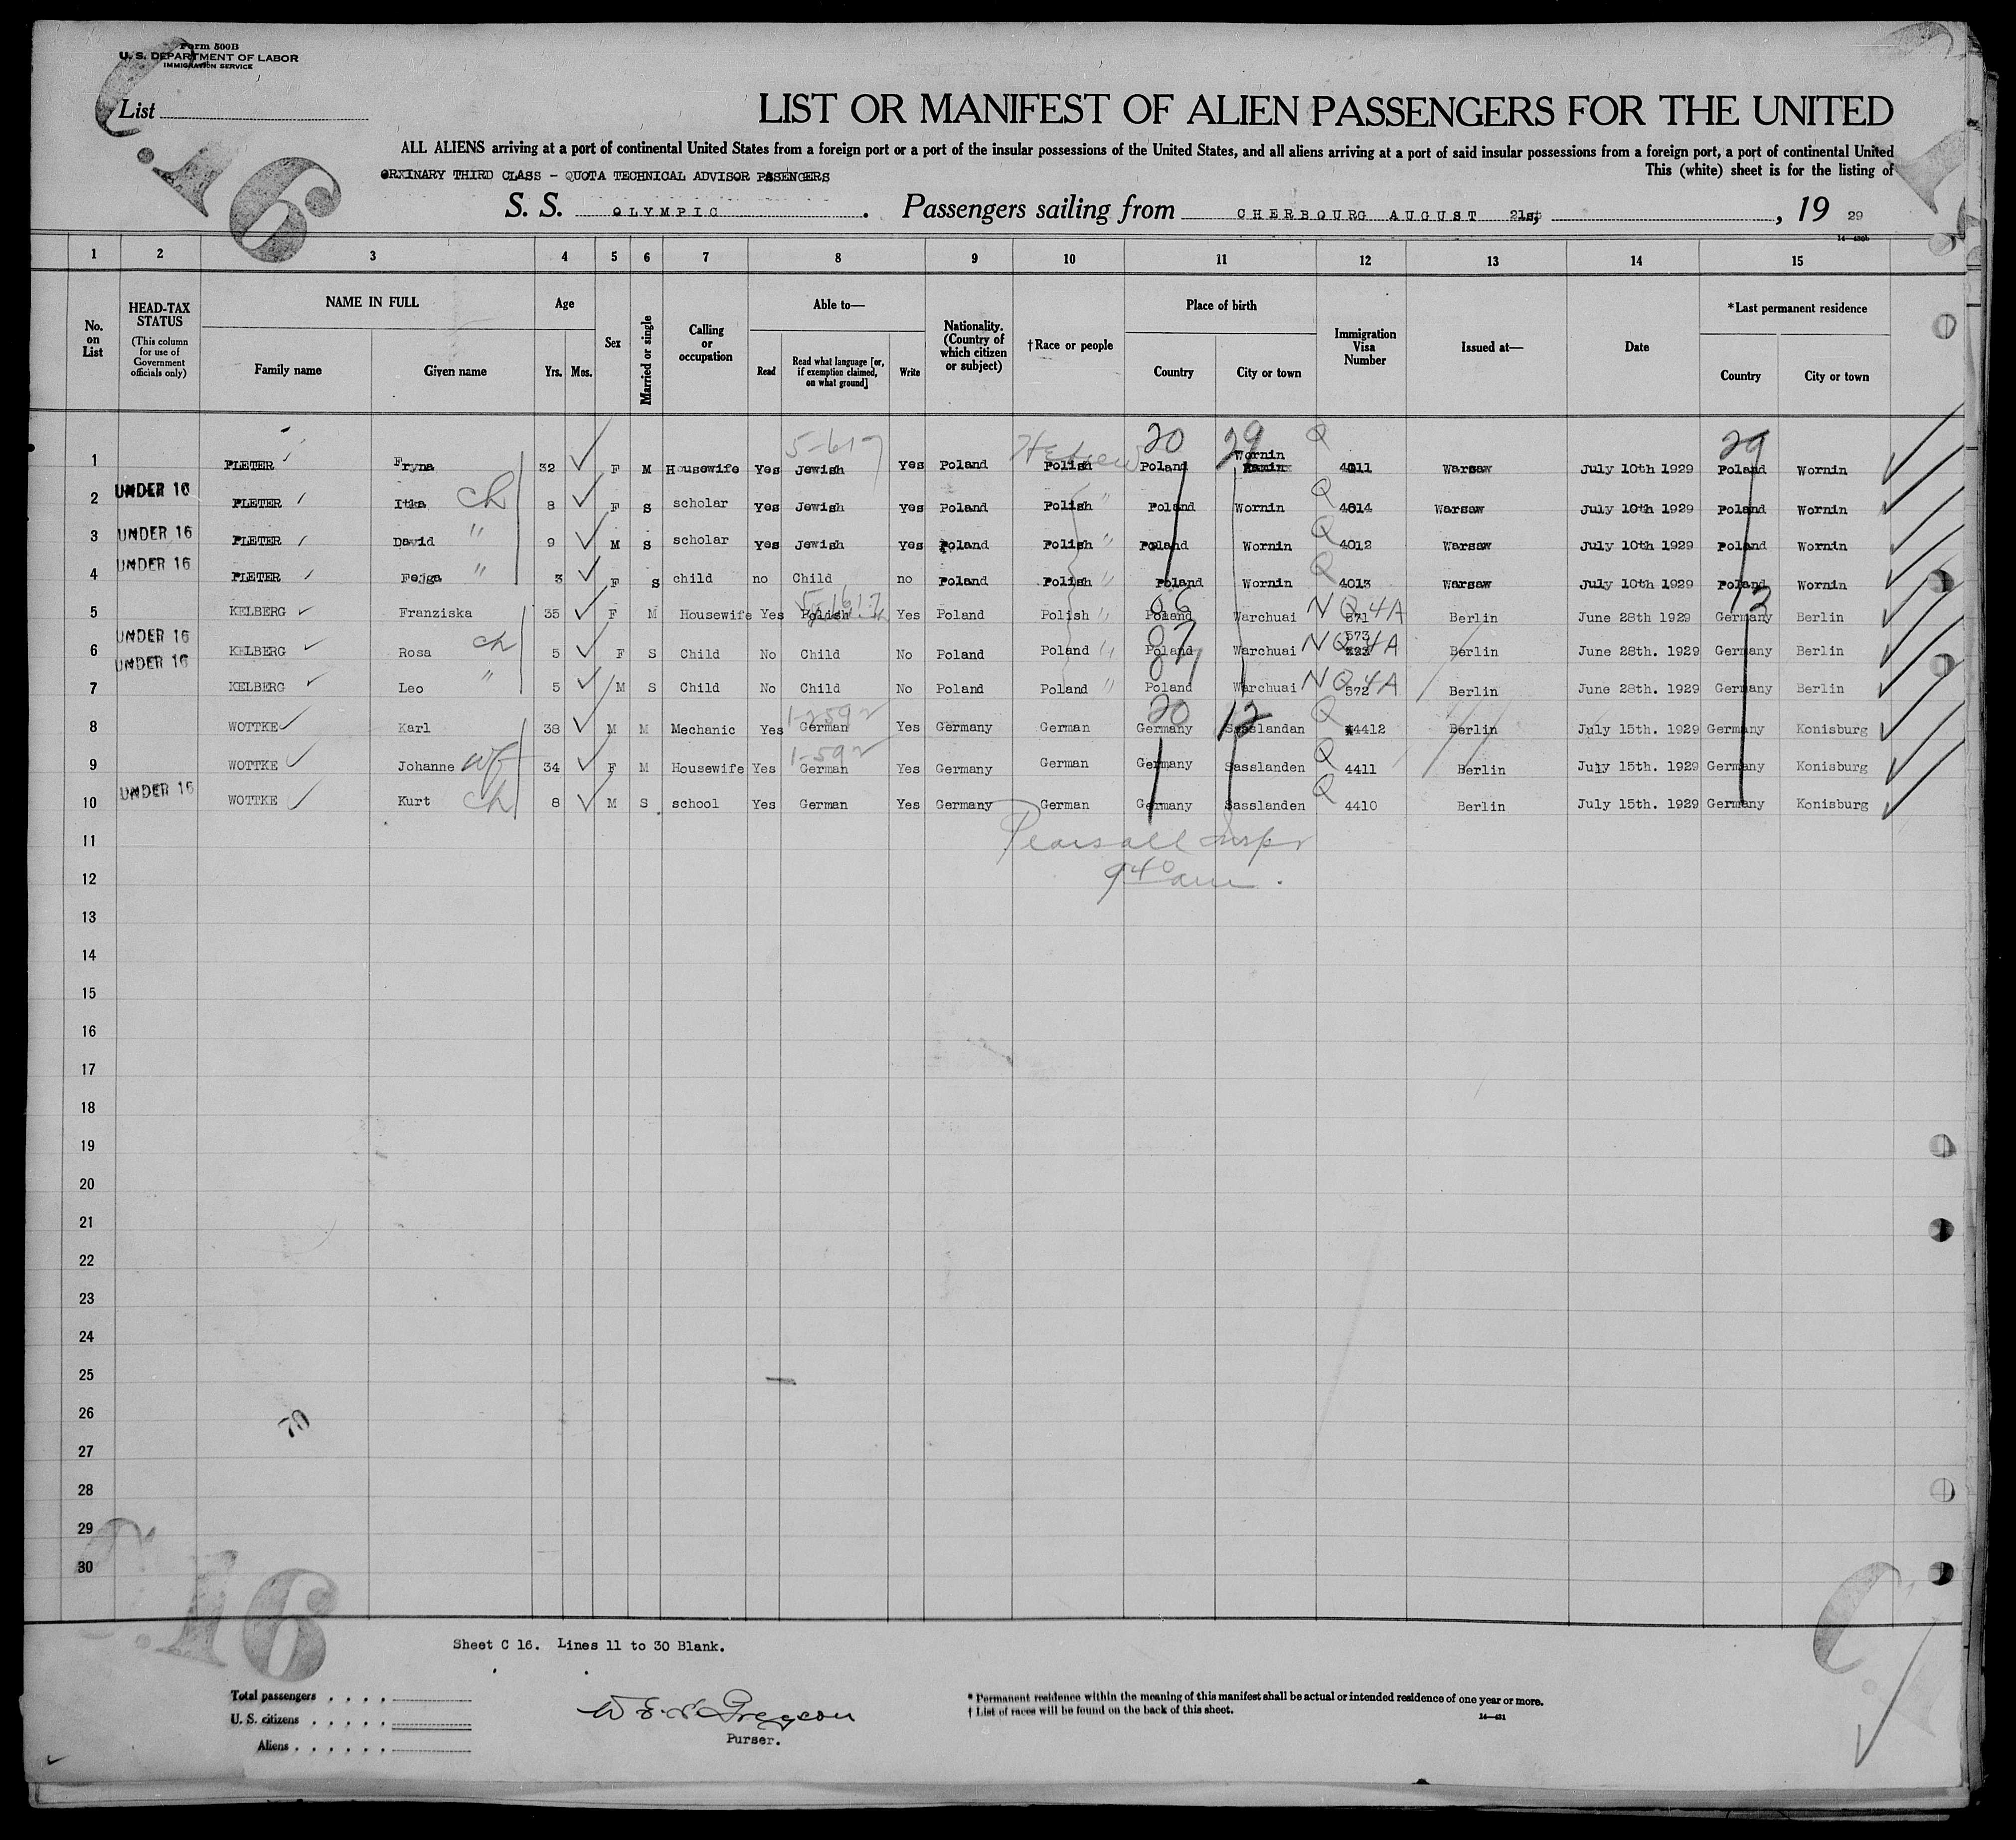 Form 500B
U. S. DEPARTMENT OF LABOR
IMMIGRATION SERVICE
List
C.16
LIST OR MANIFEST OF ALIEN PASSENGERS FOR THE UNITED
ALL ALIENS arriving at a port of continental United States from a foreign port or a port of the insular possessions of the United States, and all aliens arriving at a port of said insular possessions from a foreign port, a port of continental United
ORXINARY THIRD CLASS - QUOTA TECHNICAL ADVISOR PASENGERS
This (white) sheet is for the listing of
S. S. OLYMPIC. Passengers sailing from CHERBOURG AUGUST 21st, , 19 29
14—430b
1 2 3 4 5 6 7 8 9 10 11 12 13 14 15
No. on List
HEAD-TAX STATUS (This column for use of Government officials only)
NAME IN FULL Family name Given name
Age Yrs. Mos.
Sex
Married or single
Calling or occupation
Able to— Read Read what language [or, if exemption claimed, on what ground] Write
Nationality. (Country of which citizen or subject)
†Race or people
Place of birth Country City or town
Immigration Visa Number
Issued at—
Date
*Last permanent residence Country City or town
5-617 Hebrew 20 29 Q 29
1 PLETER Fryna 32 F M Housewife Yes Jewish Yes Poland Polish Poland Wornin 4011 Warsaw July 10th 1929 Poland Wornin
2 UNDER 16 PLETER Itka ch 8 F S scholar Yes Jewish Yes Poland Polish " Poland Wornin Q 4014 Warsaw July 10th 1929 Poland Wornin
3 UNDER 16 PLETER David " 9 M S scholar Yes Jewish Yes Poland Polish " Poland Wornin Q 4012 Warsaw July 10th 1929 Poland Wornin
4 UNDER 16 PLETER Fejga " 3 F S child no Child no Poland Polish " Poland Wornin Q 4013 Warsaw July 10th 1929 Poland Wornin
5 KELBERG Franziska 35 F M Housewife Yes Polish 5-617 Yes Poland Polish " Poland 06 Warchuai NQ4A 571 Berlin June 28th 1929 Germany 12 Berlin
6 UNDER 16 KELBERG Rosa ch 5 F S Child No Child No Poland Poland " Poland 07 Warchuai NQ4A 573 Berlin June 28th. 1929 Germany Berlin
7 UNDER 16 KELBERG Leo " 5 M S Child No Child No Poland Poland " Poland 07 Warchuai NQ4A 572 Berlin June 28th. 1929 Germany Berlin
8 WOTTKE Karl 38 M M Mechanic Yes German Yes Germany German Germany 20 12 Sasslandan Q 4412 Berlin July 15th. 1929 Germany Konisburg
9 WOTTKE Johanne wf 34 F M Housewife Yes German 1-592 Yes Germany German Germany Sasslanden Q 4411 Berlin July 15th. 1929 Germany Konisburg
10 UNDER 16 WOTTKE Kurt ch 8 M S school Yes German Yes Germany German Germany Sasslanden Q 4410 Berlin July 15th. 1929 Germany Konisburg
11 Pearsall Inspr
12 9 40 am.
13
14
15
16
17
18
19
20
21
22
23
24
25
26
70
27
28
29
30
C.16
Sheet C 16. Lines 11 to 30 Blank.
Total passengers . . . .
U. S. citizens . . . . .
Aliens . . . . . .
Purser.
* Permanent residence within the meaning of this manifest shall be actual or intended residence of one year or more.
† List of races will be found on the back of this sheet.
14—431